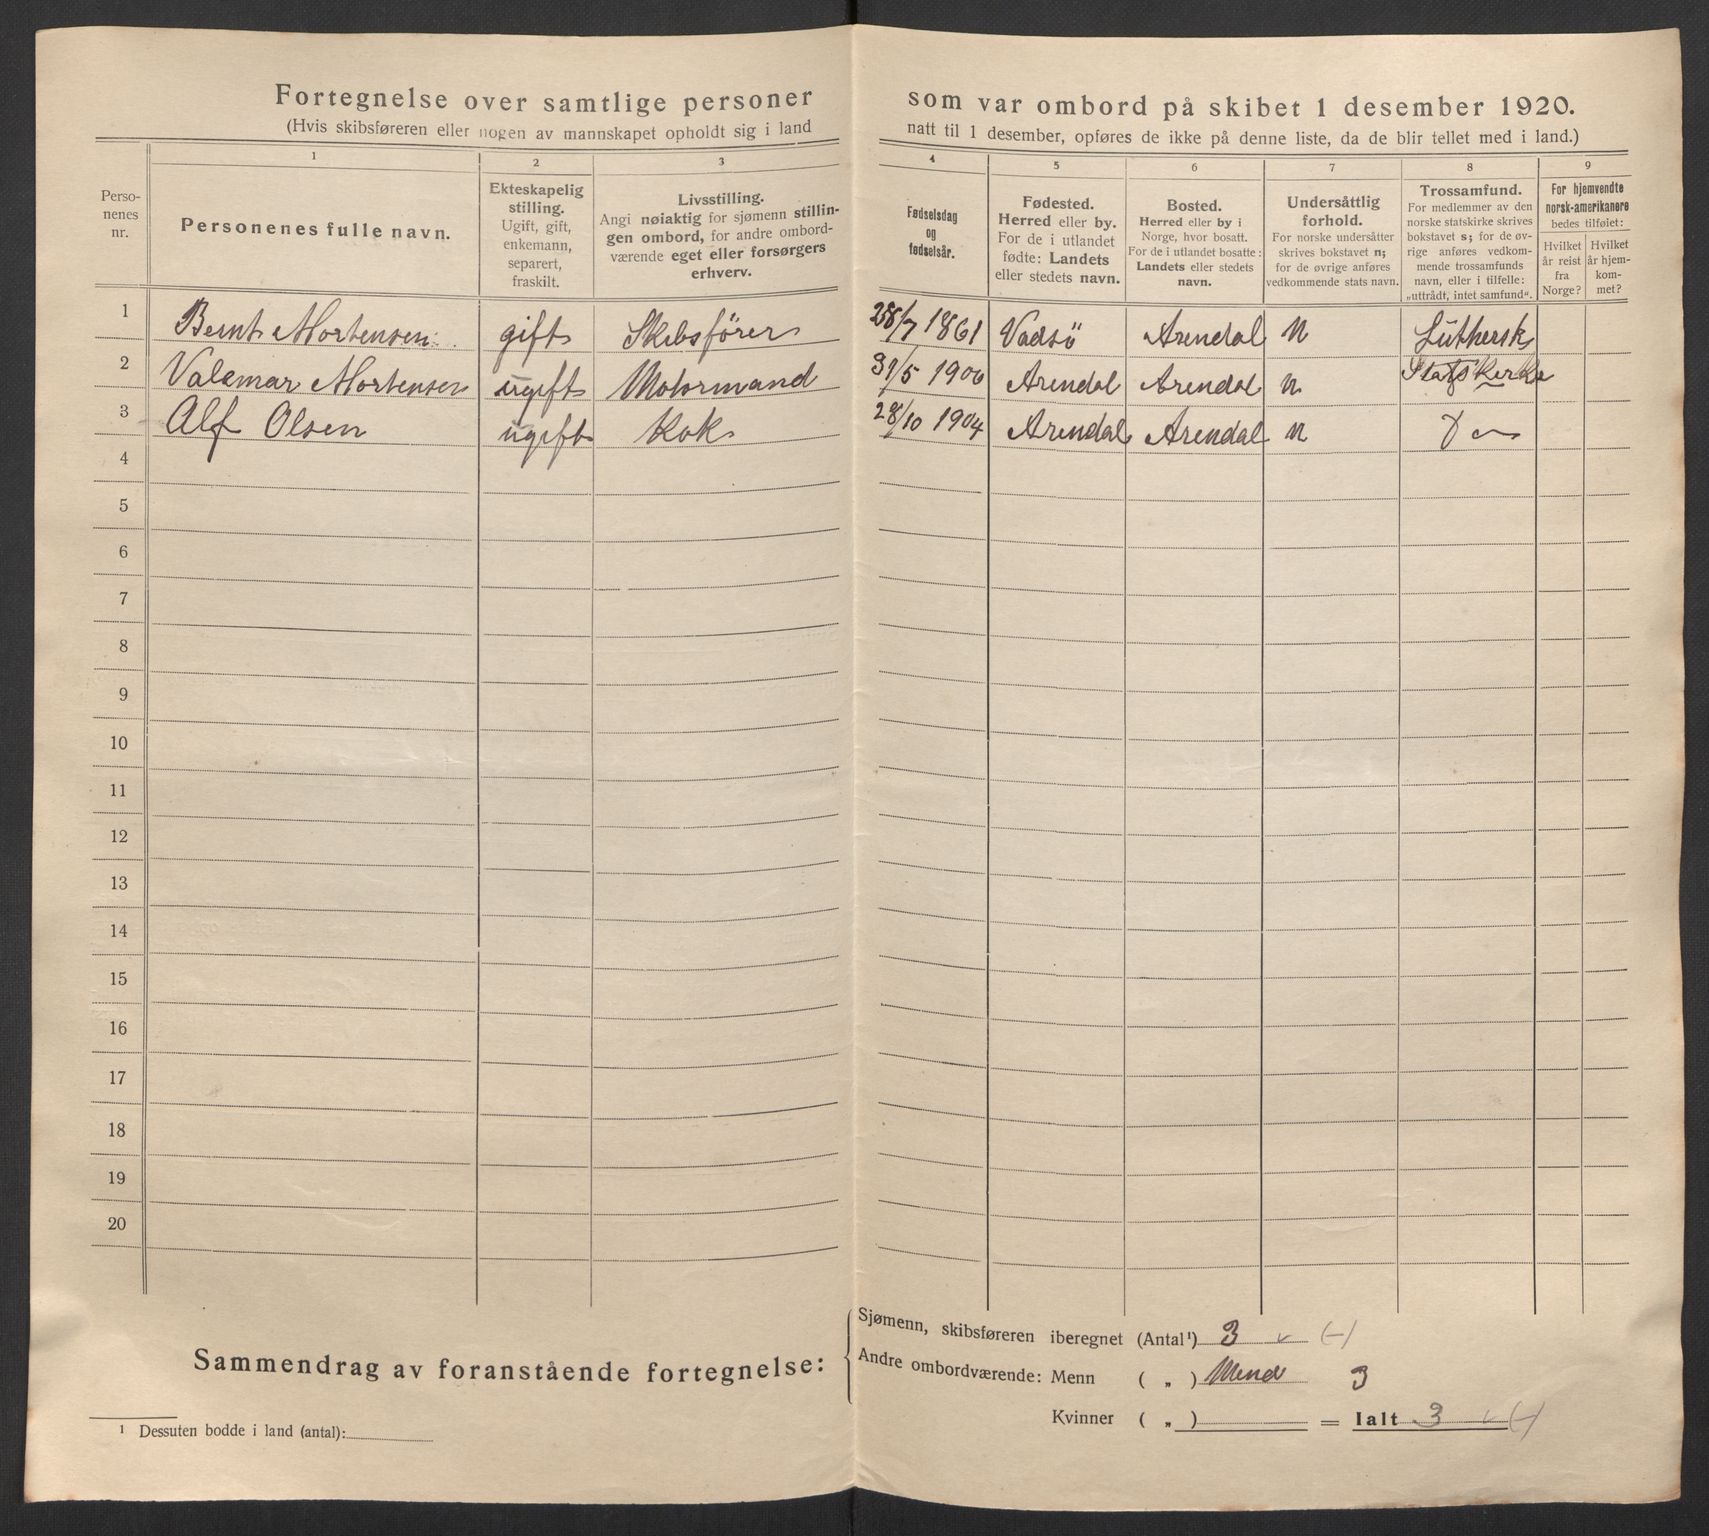 Fortegnelse over samtlige personer som var ombord på skibet 1 desember 1920.
(Hvis skibsføreren eller nogen av mannskapet opholdt sig i land natt til 1 desember, opføres de ikke på denne liste, da de blir tellet med i land.)
1 2 3 4 5 6 7 8 9
Perso-
nenes
nr.
Personenes fulle navn.
Ekteskapelig
stilling.
Ugift, gift,
enkemann,
separert,
fraskilt.
Livsstilling.
Angi nøiaktig for sjømenn stillin-
gen ombord, for andre ombord-
værende eget eller forsørgers
erhverv.
Fødselsdag
og
fødselsår.
Fødested.
Herred eller by.
For de i utlandet
fødte: Landets
eller stedets navn.
Bosted.
Herred eller by i
Norge, hvor bosatt.
For de i utlandet bosatte:
Landets eller stedets
navn.
Undersåttlig
forhold.
For norske undersåtter
skrives bokstavet n;
for de øvrige anføres
vedkommende stats navn.
Trossamfund.
For medlemmer av den
norske statskirke skrives
bokstavet s; for de øv-
rige anføres vedkom-
mende trossamfunds
navn, eller i tilfelle:
„uttrådt, intet samfund“.
For hjemvendte
norsk-amerikanere
bedes tilføiet:
Hvilket
år reist
fra
Norge?
Hvilket
år hjem-
kom-
met?
1 Bernt Mortensen gift Skibsförer 28/7 1861 Vadsö Arendal n Luthersk
2 Valemar Mortensen ugift Motormand 31/5 1900 Arendal Arendal n Statskerke
3 Alf Olsen ugift Kok 28/10 1904 Arendal Arendal n
4
5
6
7
8
9
10
11
12
13
14
15
16
17
18
19
20
Sammendrag av foranstående fortegnelse:
Sjømenn, skibsføreren iberegnet (Antal¹) 3 (-)
Andre ombordværende: Menn ( „ ) Mend 3
Kvinner ( „ ) = Ialt 3 (-)
¹ Dessuten bodde i land (antal):